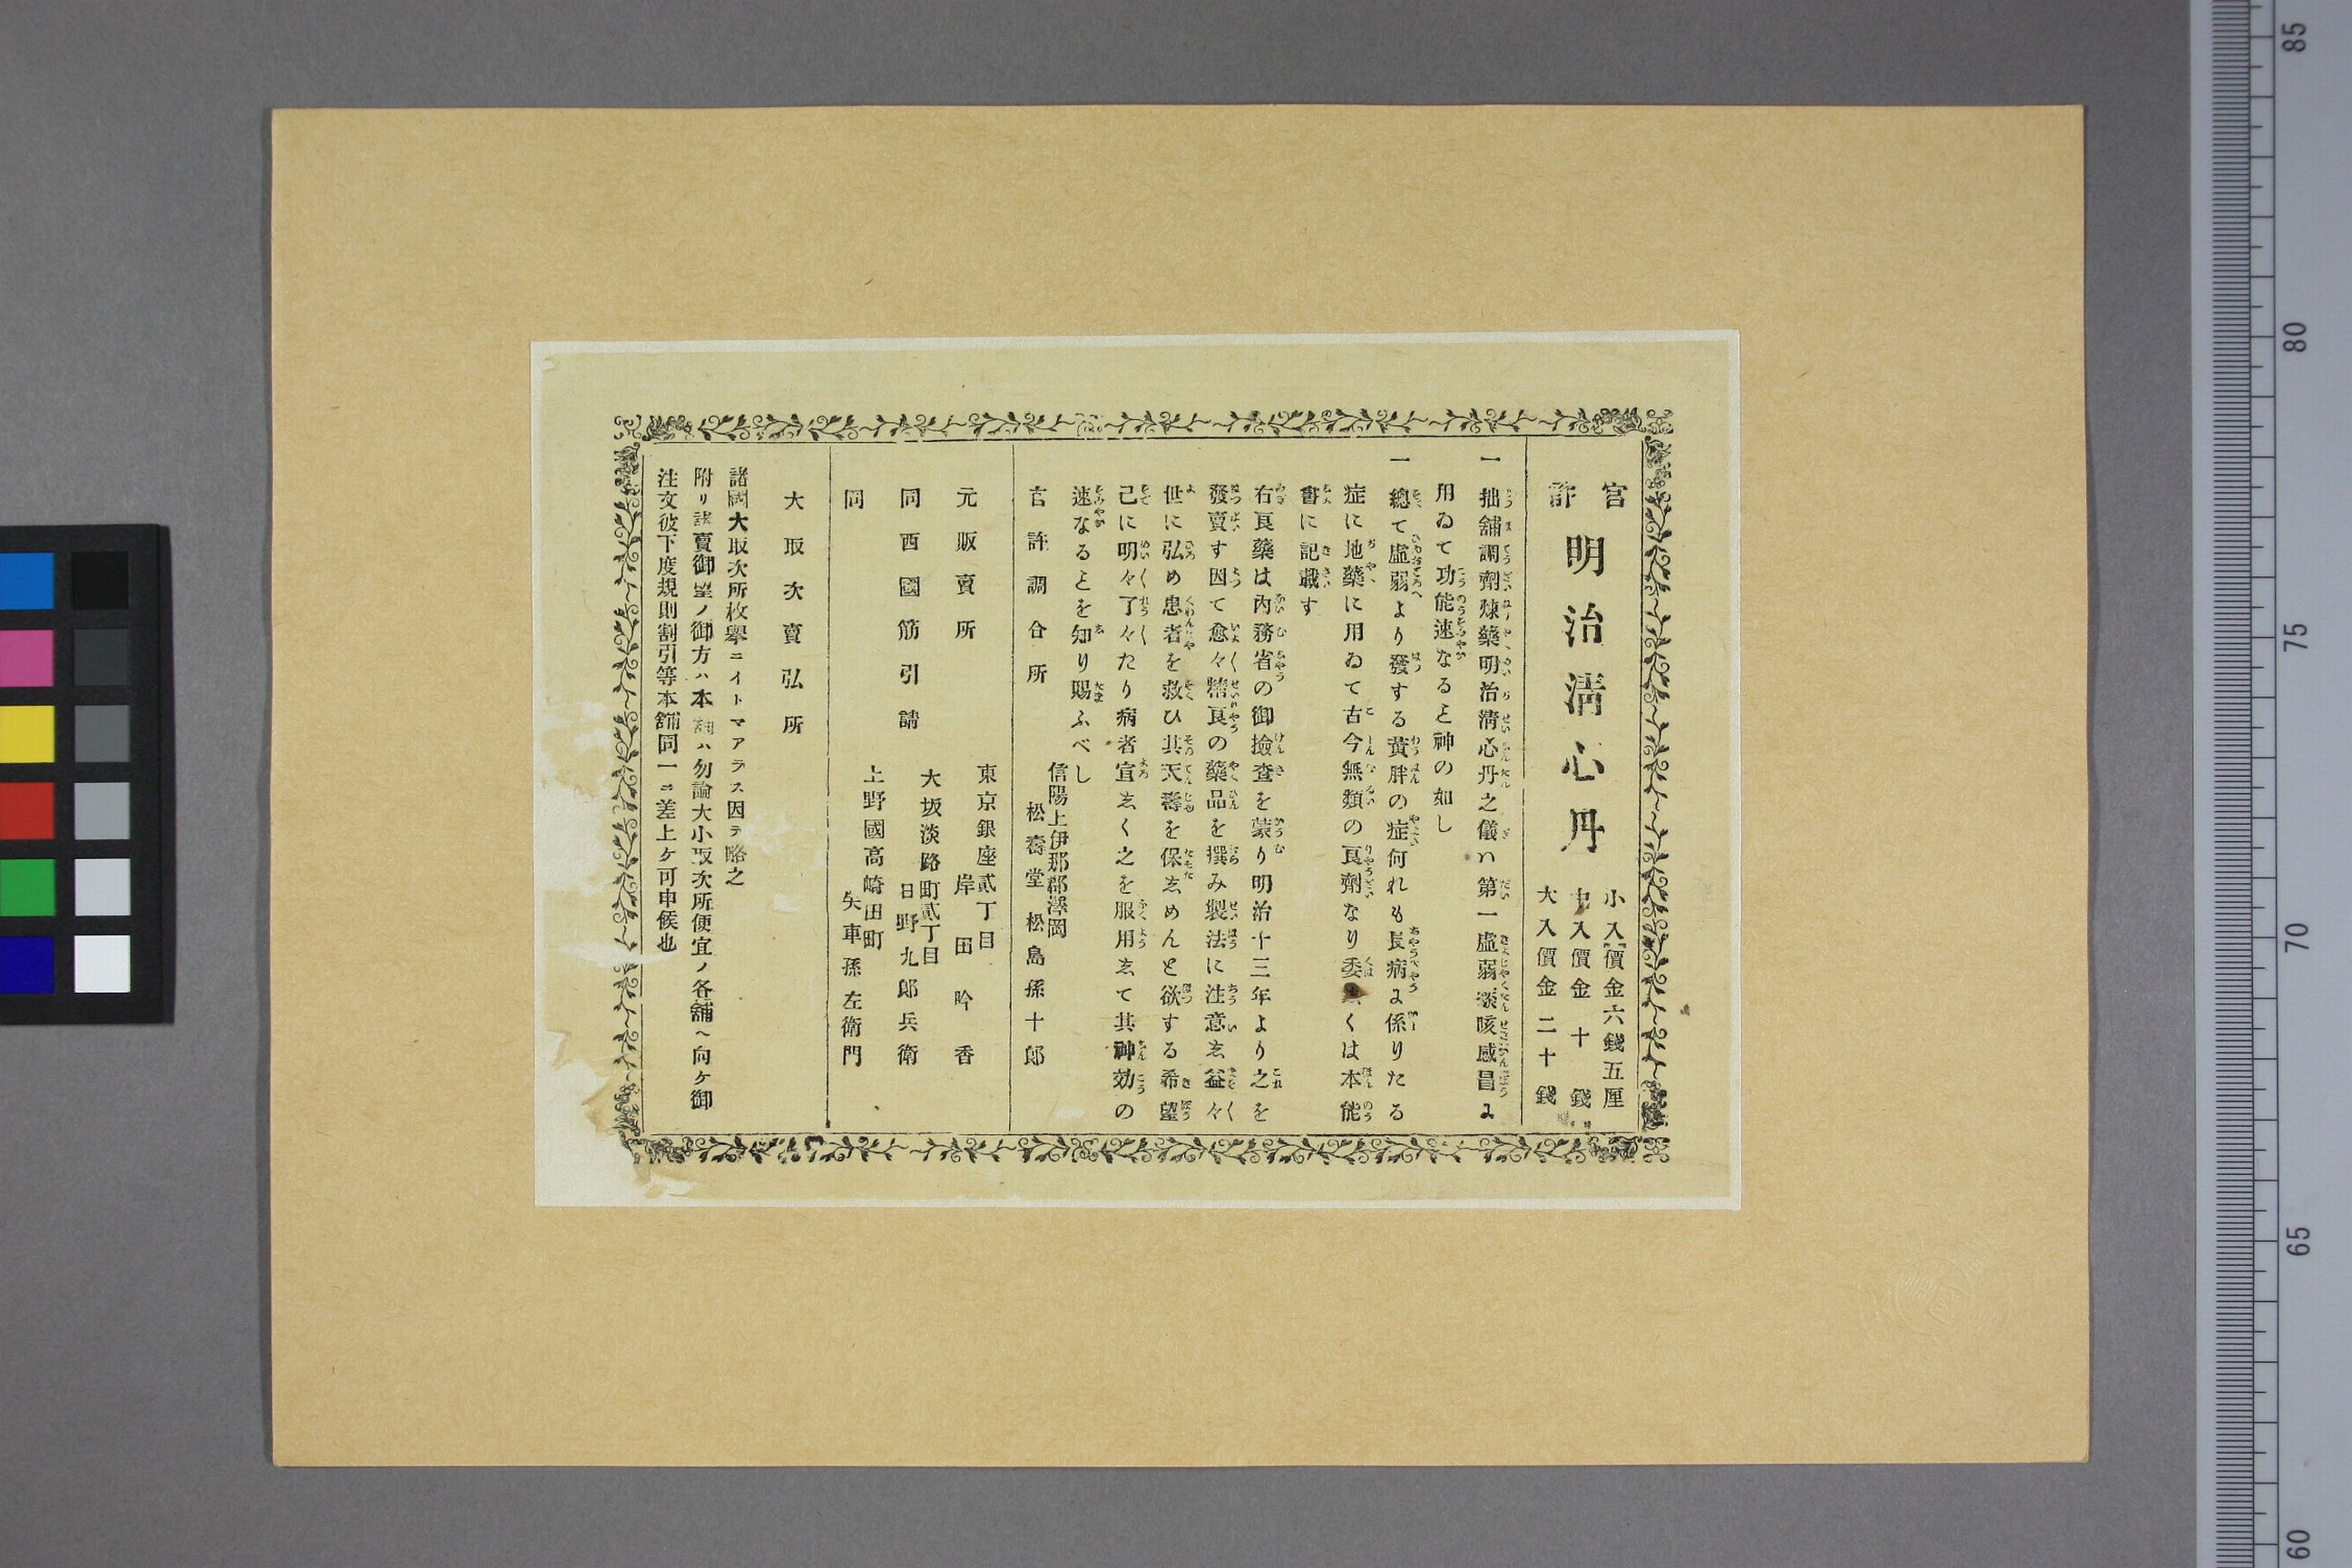 官許
明治淸心丹
小入價金六錢五厘
中入價金十錢
大入價金二十錢
一拙舖調劑煉藥明治淸心丹之儀ハ第一虛弱痰咳感冒に
用ゐて功能速なると神の如し
一總て虛弱より發する黃胖の症何れも長病に係りたる
症に地藥に用ゐて古今無類の良劑なり委くは本能
書に記載す
右良藥は內務省の御撿査を蒙り明治十三年より之を
發賣す因て愈々精良の藥品を撰み製法に注意し益々
世に弘め患者を救ひ其天壽を保しめんと欲する希望
己に明々了々たり病者宜しく之を服用して其神効の
速なるとを知り賜ふべし
信陽上伊那郡澤岡
官許調合所 松壽堂 松島孫十郎
東京銀座貳丁目
元販賣所 岸田吟香
大坂淡路町貳丁目
同西國筋引請 日野九郎兵衛
上野國高崎田町
同 矢車孫左衛門
大取次賣弘所
諸國大取次所枚擧ニイトマアラス因テ略之
附リ諸賣御望ノ御方ハ本舖ハ勿論大小取次所便宜ノ各舖ヘ向ケ御
注文彼下度規則割引等本舖同一ニ差上ケ可申候也
85
80
75
70
65
60